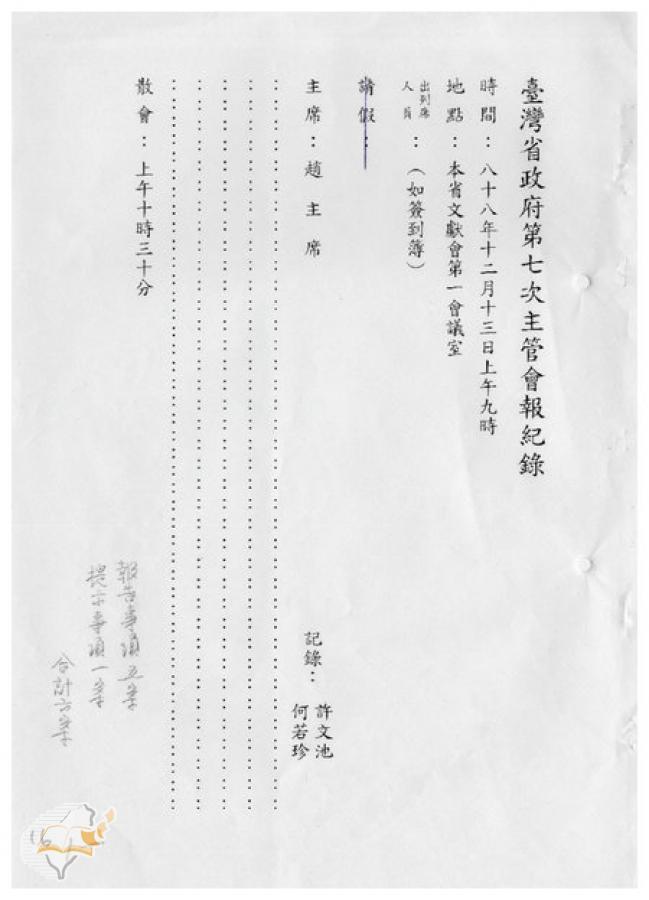 臺灣省政府第七次主管會報紀錄
時間：八十八年十二月十三日上午九時
地點：本省文獻會第一會議室
出列席人員：（如簽到簿）
請假：
主席：趙主席
記錄：許文池
何若珍
散會：上午十時三十分
報告事項五案
提示事項一案
合計六案